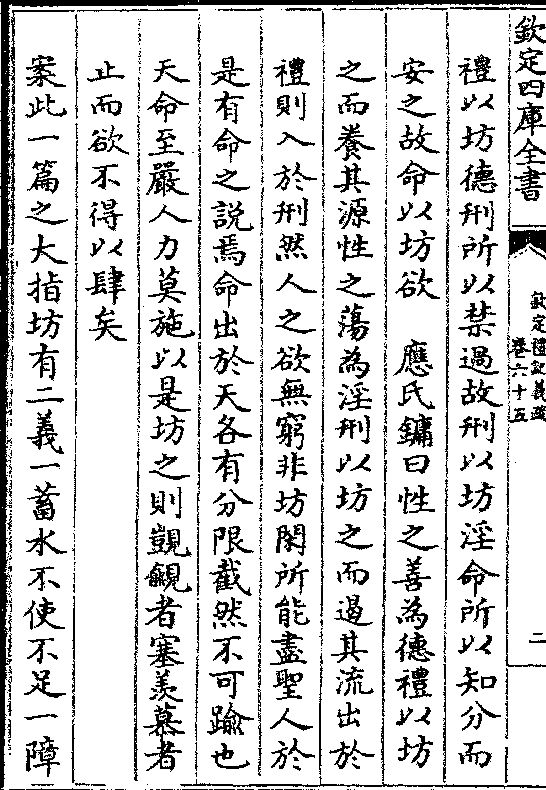 欽定四庫全書
欽定禮記義疏
卷六十五
二
禮以坊德刑所以禁過故刑以坊淫命所以知分而
安之故命以坊欲　應氏鏞曰性之善為德禮以坊
之而養其源性之蕩為淫刑以坊之而遏其流出於
禮則入於刑然人之欲無窮非坊閑所能盡聖人於
是有命之說焉命出於天各有分限截然不可踰也
天命至嚴人力莫施以是坊之則覬覦者塞羨慕者
止而欲不得以肆矣
案此一篇之大指坊有二義一蓄水不使不足一障